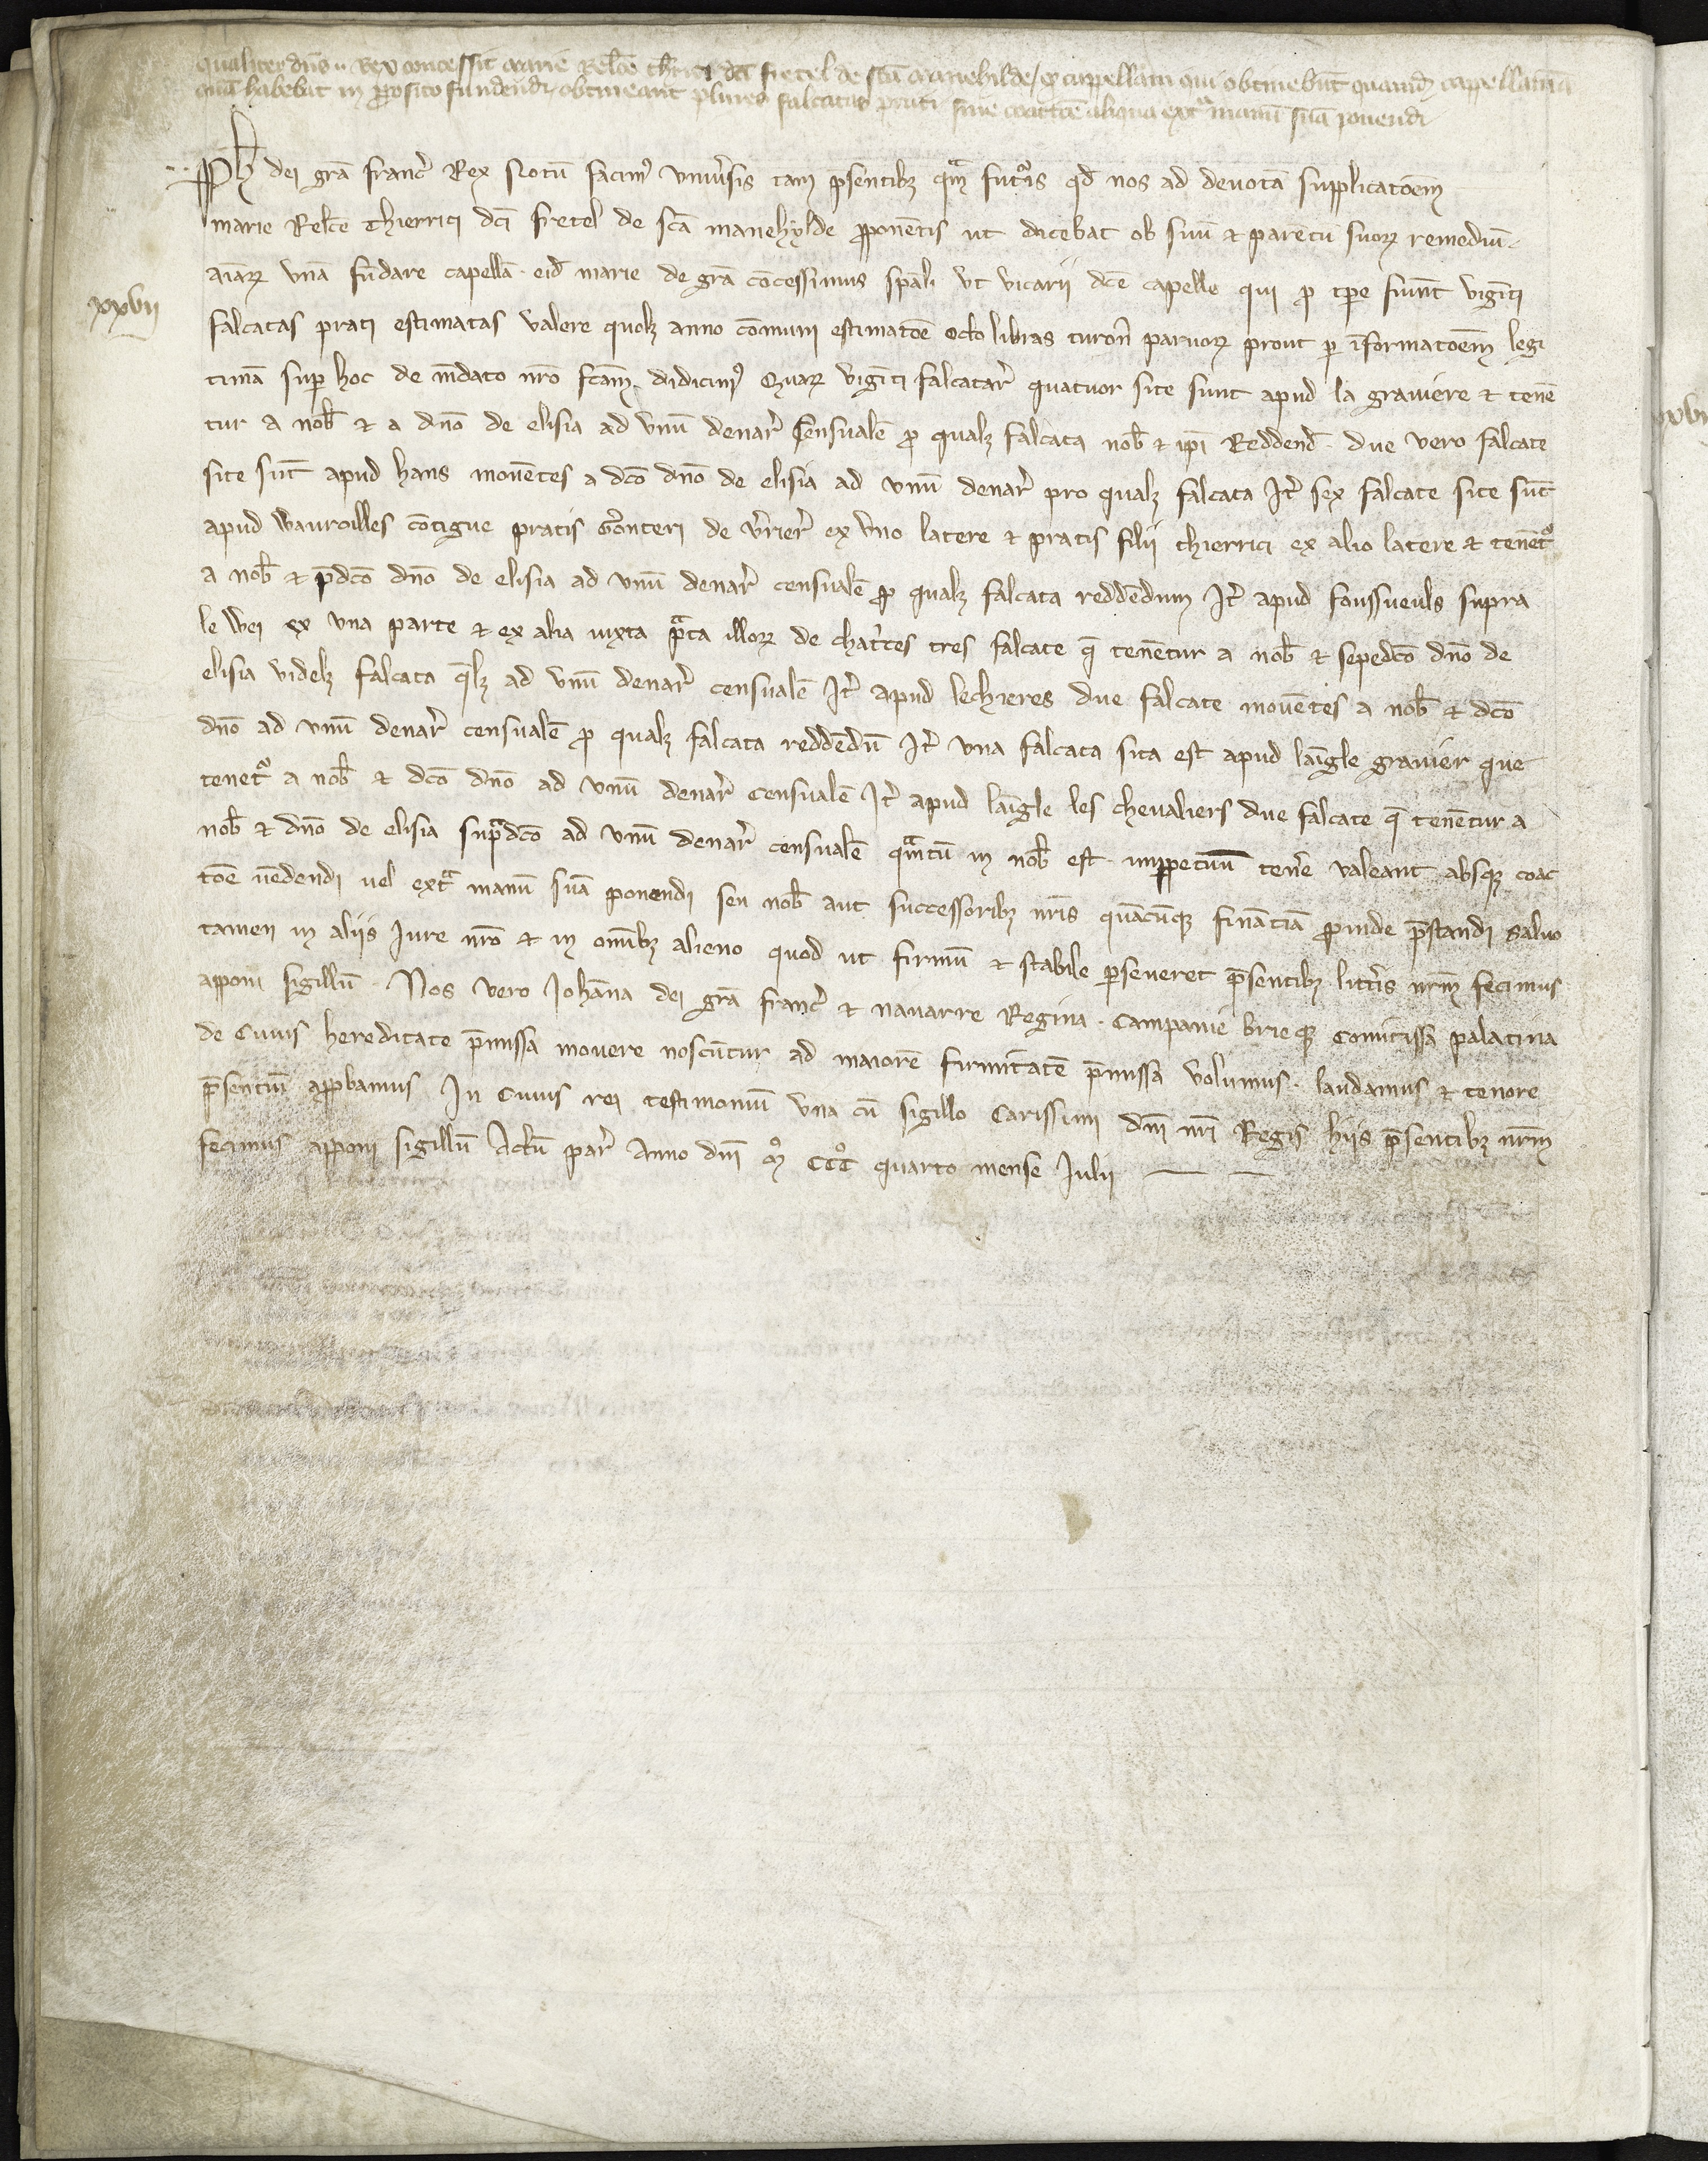 qualiter dn̄s .. Rex concessit marie Relc̄e thr̄ici dc̄i fretel de scā manehilde / qͥ capellam qui obtinebūt quamdā cappellaniā
quā habebat in p̄posito fundendi obtineant plures falcatas prati sine coactōe aliqua extͣ manū suā ponendi
Ph̄ dei grā franc̄ Rex Notū facimꝰ vniu̾sis tam p̄sentibꝫ qͣm futuris qd̄ nos ad deuotā supplicatōem
marie Relc̄e thierrici dc̄i fretel de scā manehylde p̄ponētis ut dicebat ob suū ⁊ parētū suoꝝ remediū
aīaꝝ vnā fūdare capellā . eid̄ marie de grā cōcessimus spāli vt vicarii dc̄e capelle qui p̄ tp̄e fuint̄ vigīti
xxvii
falcatas prati estimatas valere quolꝫ anno cōmuni estimatōe octo libras turoñ paruoꝝ prout ꝑ īformatōem legi
timā suꝑ hoc de mādato nr̄o fcām didicimꝰ Quaꝝ vigīti falcatar̄ quatuor site sunt apud la grauiere ⁊ tenē
tur a nob̄ ⁊ a dn̄o de elisia ad vnū denar̄ sensualē ꝓ qualꝫ falcata nob̄ ⁊ ip̄i Reddend̄ . due vero falcate
site sūt apud hans mouētes a dc̄o dn̄o de elisia ad vnū denar̄ pro qualꝫ falcata It̄ sex falcate site sūt
apud Wauroilles cōtigue pratis Gōnteri de vr̄ier̄ ex vno latere ⁊ pratis filii thierrici ex alio latere ⁊ tenētꝰ
a nob̄ ⁊ p̄dc̄o dn̄o de elisia ad vnū denar̄ censualē ꝓ qualꝫ falcata reddēdum It̄ apud foussueuls supra
le Wei ex vna parte ⁊ ex alia iuxta pͣta illoꝝ de chat̄ces tres falcate q̄ tenētur a nob̄ ⁊ sepedc̄o dn̄o de
elisia videlꝫ falcata q̄lꝫ ad vnū denar̄ censualē It̄ apud lechieres due falcate mouētes a nob̄ ⁊ dc̄o
dn̄o ad vnū denar̄ censualē ꝓ qualꝫ falcata reddēdū It̄ vna falcata sita est apud lāgle grauier que
tenetꝰ a nob̄ ⁊ dc̄o dn̄o ad vnū denar̄ censualē It̄ apud lāgle les cheualiers due falcate q̄ tenētur a
nob̄ ⁊ dn̄o de elisia supͣdc̄o ad vnū denar̄ censualē qͣtū in nob̄ est . imꝑpetuū tener̄e valeant absqꝫ coac
tōe uēdendi uel extͣ manū suā ponendi seu nob̄ aut successoribꝫ nr̄is quācūqꝫ finātiā ꝓinde p̄standi saluo
tamen in aliis Iure nr̄o ⁊ in omībꝫ alieno quod ut firmū ⁊ stabile ꝑseueret p̄sentibꝫ litt̄is nr̄m fecimus
apponi sigillū . Nos vero Johāna dei grā franc̄ ⁊ nauarre Regina . Campanie brieqꝫ Comitissa palatina
de Cuius hereditate p̄missa mouere noscūtur ad maiorē firmitatē p̄missa volumus . laudamus ⁊ tenore
p̄sentiū apꝓbamus In Cuius rei testimoniū vna cū sigillo Carissimi dn̄i nr̄i Regis hiis p̄sentibꝫ nr̄m
fecimus apponi sigillū Actū par̄ Anno dn̄i mͦ CCCͦ quarto mense Iulii